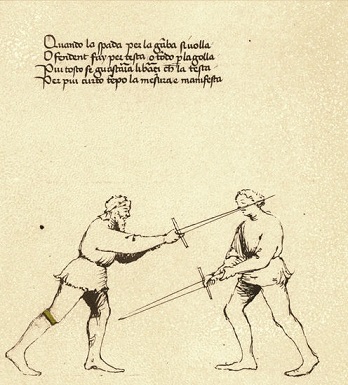 Quando la spada per la gãba si uolla
O fendent fay per testa o todo p la golla
Piu tosto se guastaria li braçi ch̃ la testa
Per piu curto tẽpo la mesura e manifesta